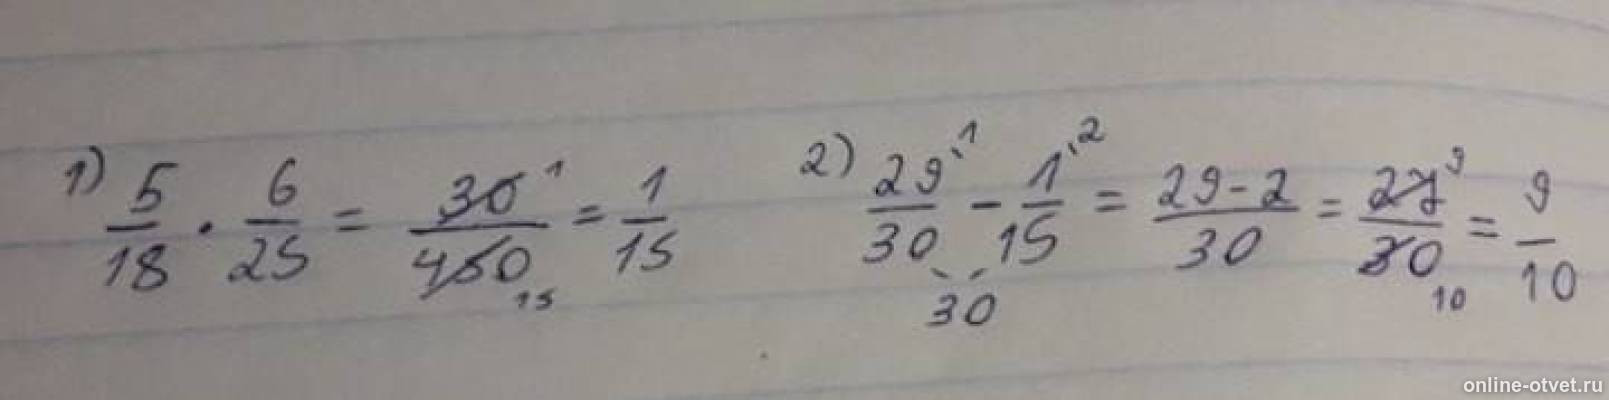 1) 5/18 · 6/25 = 30/450 1 15 = 1/15
2) 29/30 1 - 1/15 2 30 = 29-2/30 = 27/30 9 10 = 9/10
online-otvet.ru